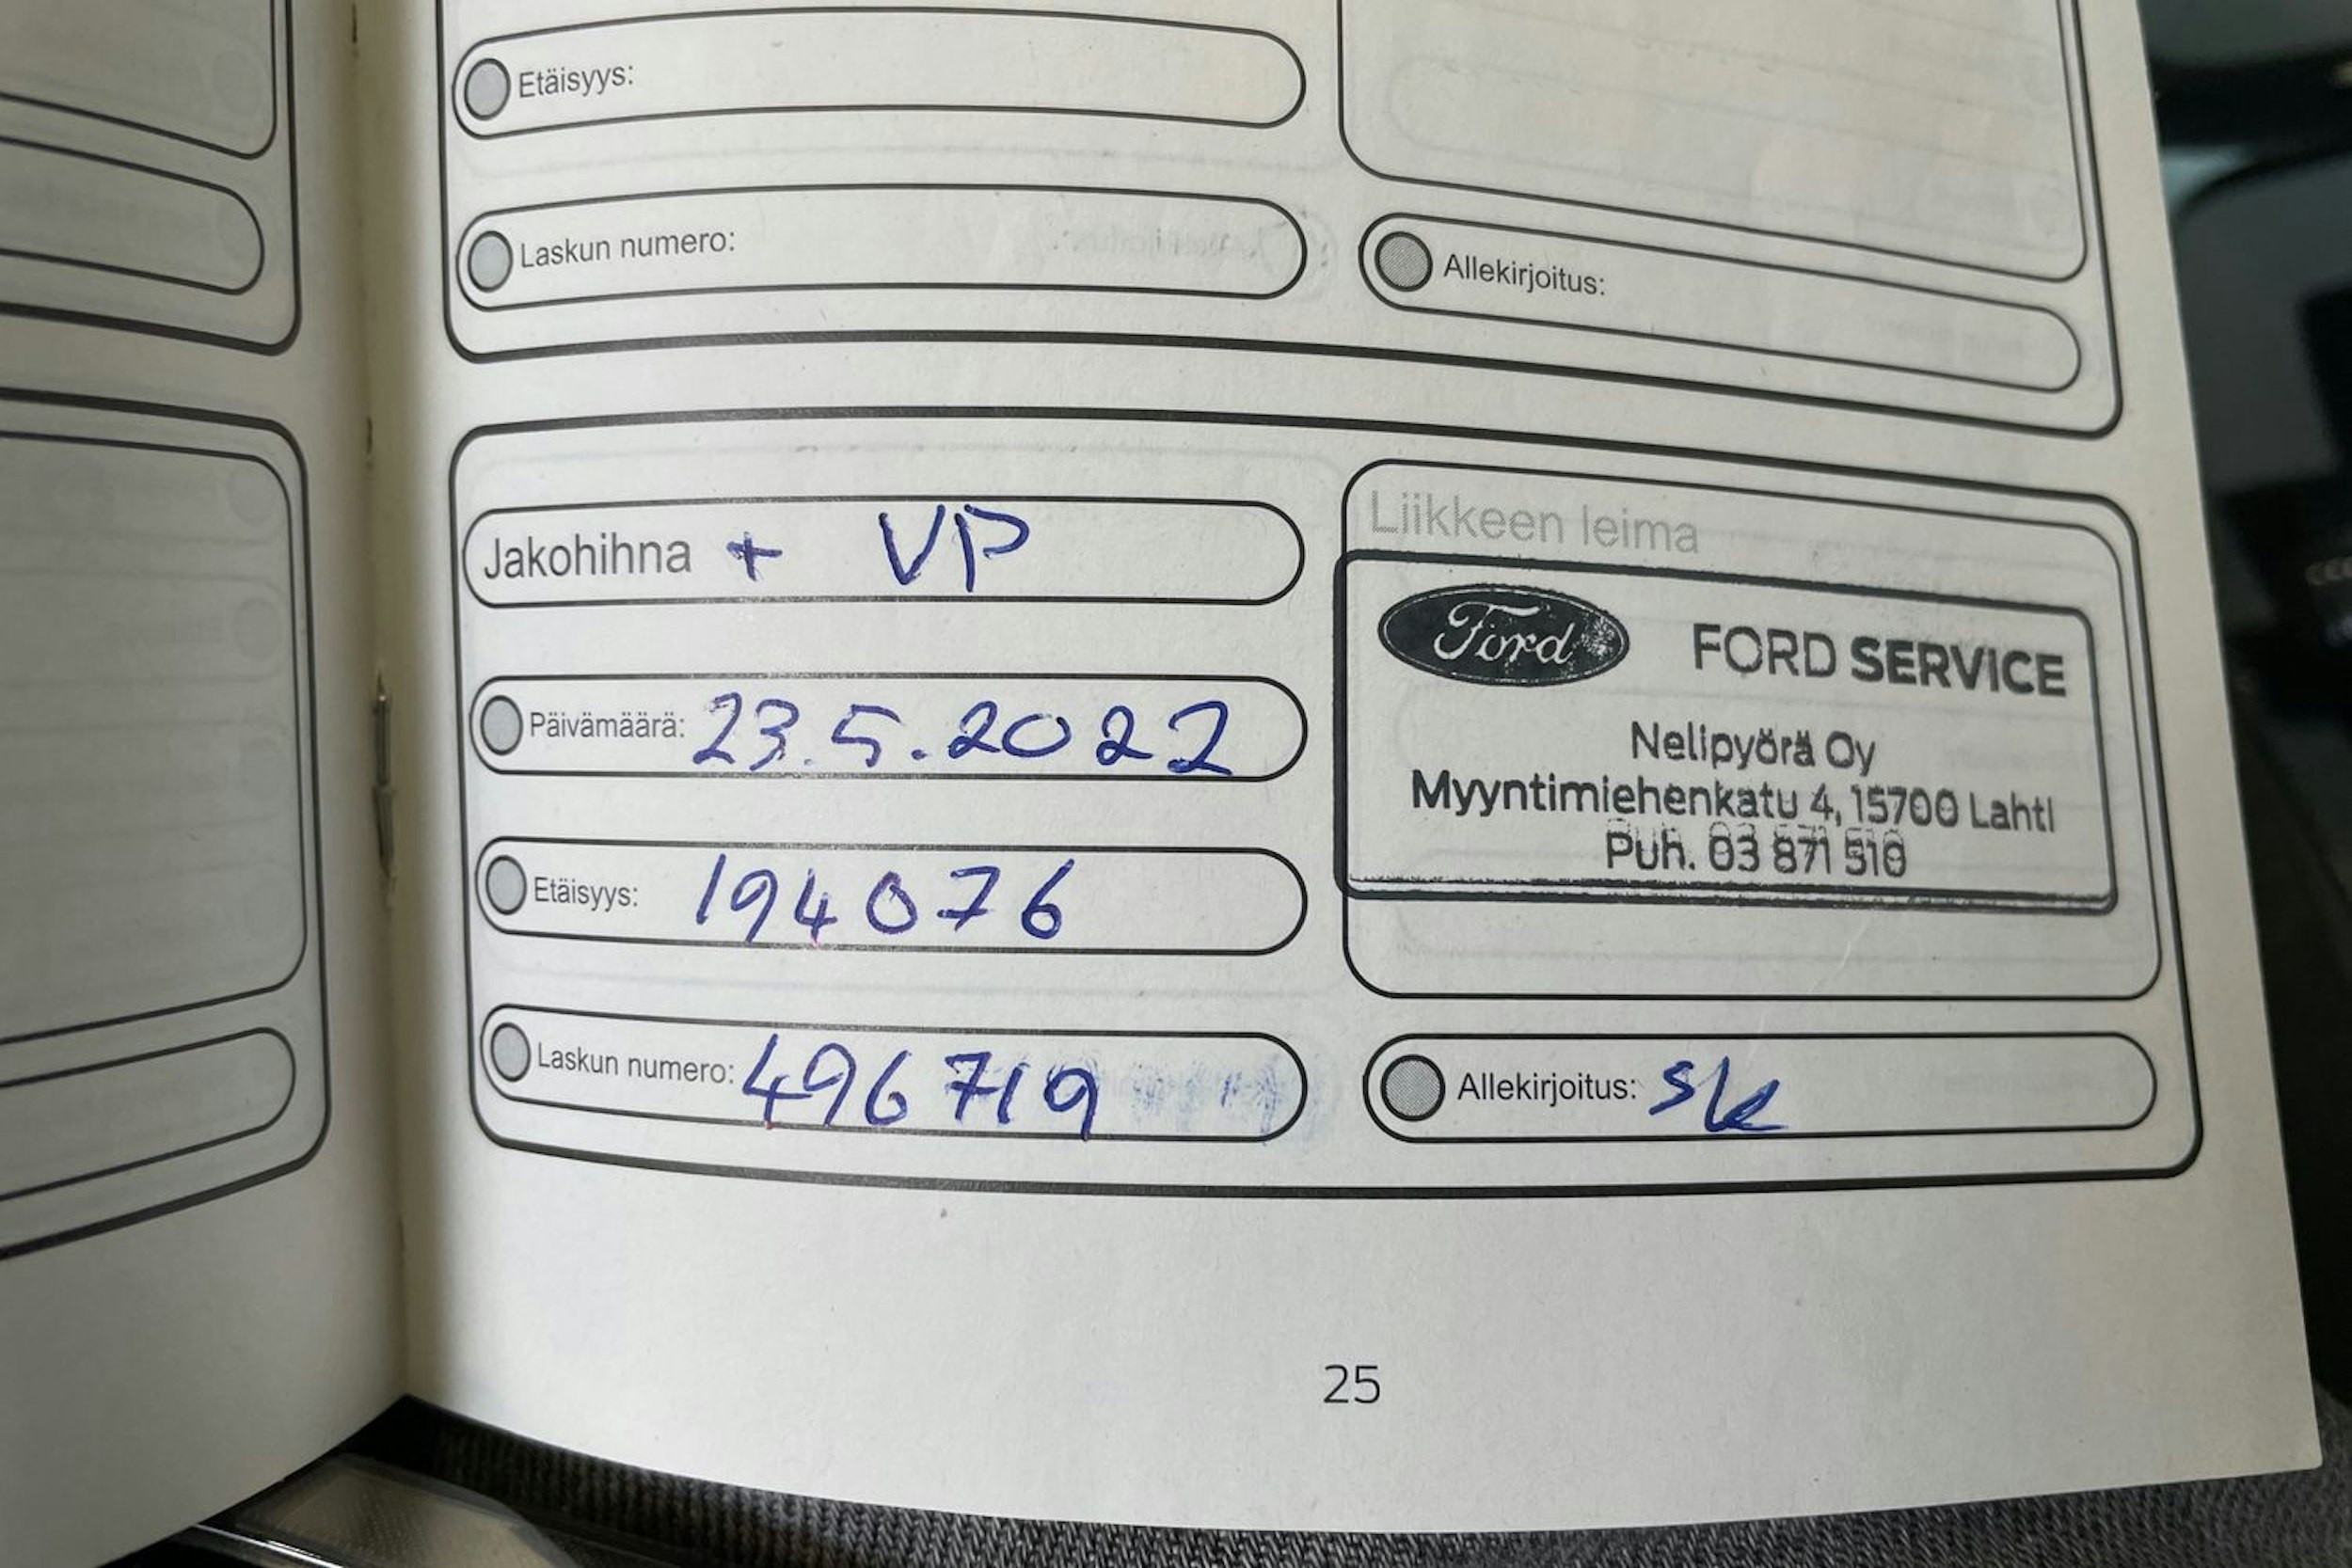 Etäisyys:
Laskun numero:
Allekirjoitus:
Jakohihna + VP
Päivämäärä: 23.5.2022
Etäisyys: 194076
Laskun numero: 496719
Liikkeen leima
Ford FORD SERVICE
Nelipyörä Oy
Myyntimiehenkatu 4, 15700 Lahti
Puh. 03 871 510
Allekirjoitus: sk
25